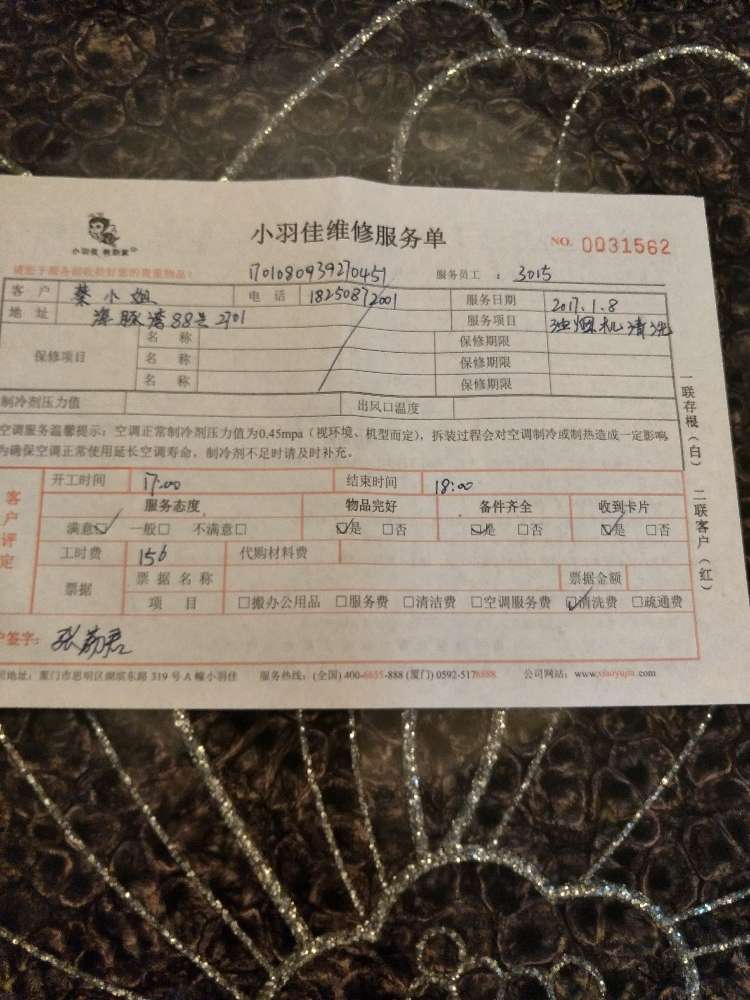 小羽佳维修服务单
NO. 0031562
小羽佳
1701080939270451 服务员工：3015
客户 蔡小姐 电话 18250872001 服务日期 2017.1.8
地址 海豚湾88号2701 服务项目 油烟机清洗
保修项目
名称 保修期限
名称 保修期限
名称 保修期限
制冷剂压力值 出风口温度
空调服务温馨提示：空调正常制冷剂压力值为0.45mpa（视环境、机型而定），拆装过程会对空调制冷或制热造成一定影响
为确保空调正常使用延长空调寿命，制冷剂不足时请及时补充。
客户评定
开工时间 17:00 结束时间 18:00
服务态度 物品完好 备件齐全 收到卡片
满意☑ 一般□ 不满意□ ☑是 □否 ☑是 □否 ☑是 □否
工时费 156 代购材料费
票据 票据名称 票据金额
项目 □搬办公用品 □服务费 □清洁费 □空调服务费 ☑清洗费 □疏通费
户签字：
地址：厦门市思明区湖滨东路319号A幢小羽佳 服务热线：(全国) 400-6655-888 (厦门) 0592-5176888 公司网站：www.xiaoyujia.com
一联存根（白） 二联客户（红）